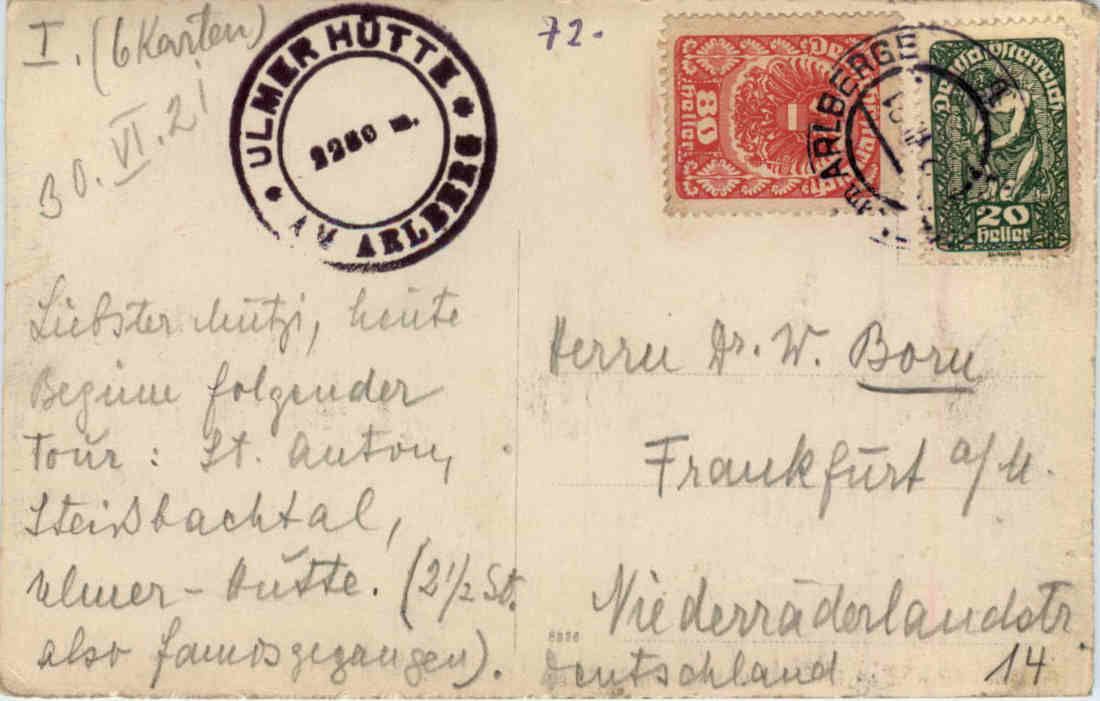 I. (6 Karten)
30.VI.21
ULMER HÜTTE
2280 m.
* AM ARLBERG *
72.
80
heller
Deutschösterreich
20
heller
ARLBERGE
Liebster Mutzi, heute
Beginne folgender
Tour: St. Anton,
Steißbachtal,
Ulmer-Hütte. (2½ St.
also famos gegangen).
Herrn Dr. W. Born
Frankfurt a/M.
Niederräderlandstr.
14
Deutschland.